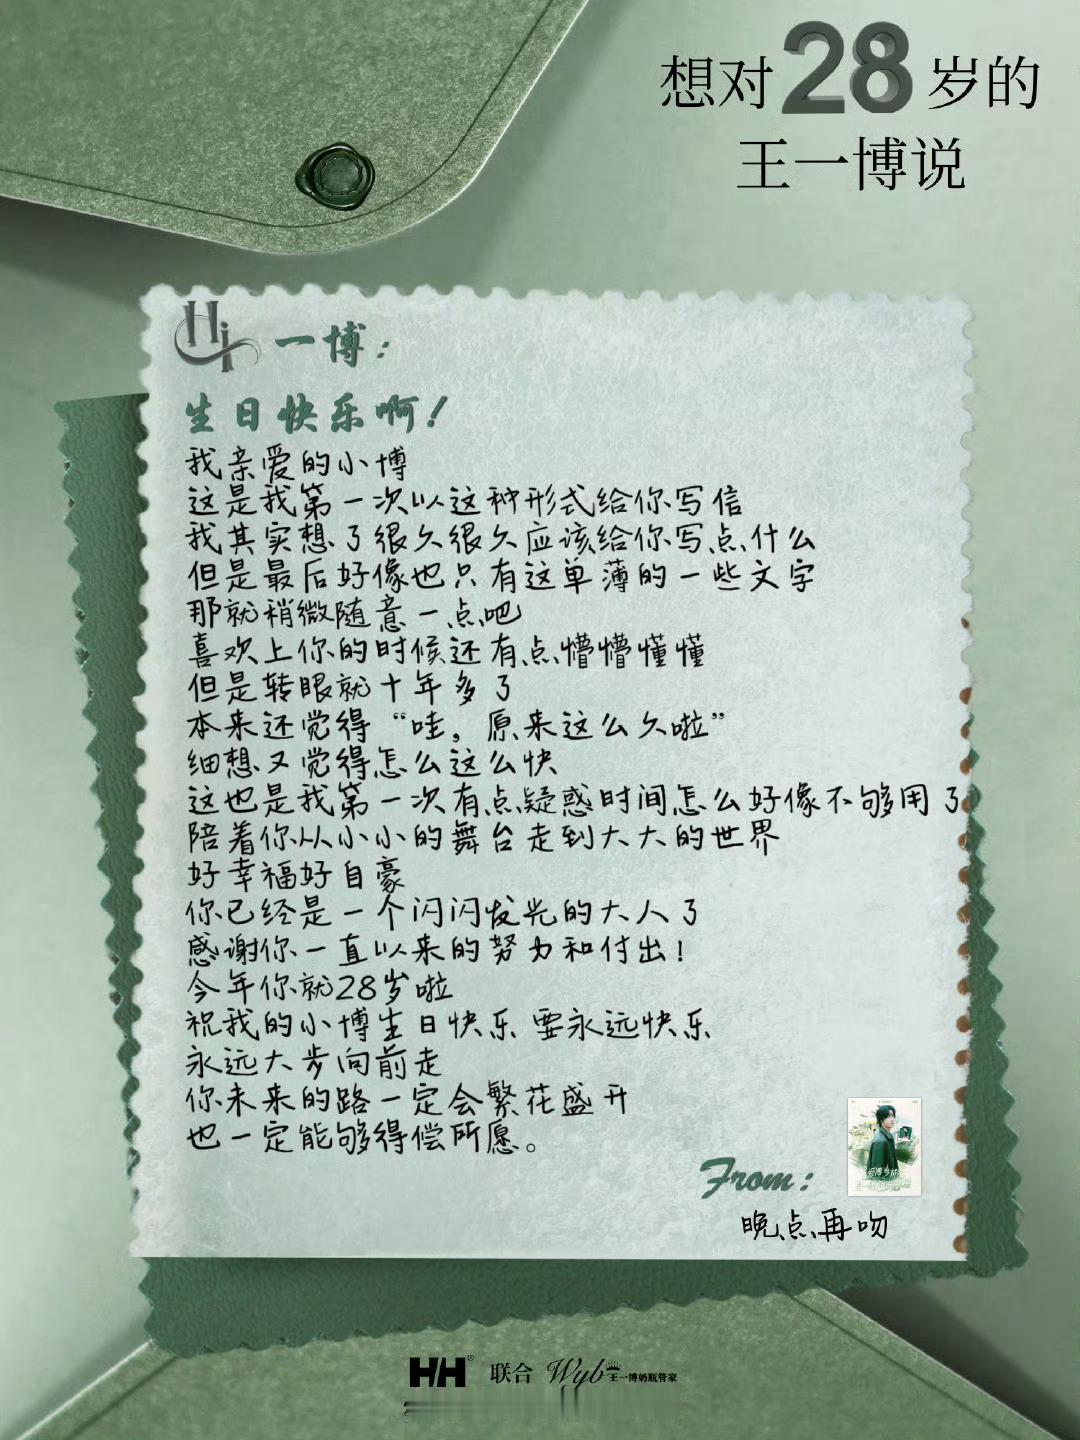 想对28岁的
王一博说
Hi 一博：
生日快乐啊！
我亲爱的小博
这是我第一次以这种形式给你写信
我其实想了很久很久应该给你写点什么
但是最后好像也只有这单薄的一些文字
那就稍微随意一点吧
喜欢上你的时候还有点懵懵懂懂
但是转眼就十年多了
本来还觉得“哇，原来这么久啦”
细想又觉得怎么这么快
这也是我第一次有点疑惑时间怎么好像不够用了
陪着你从小小的舞台走到大大的世界
好幸福好自豪
你已经是一个闪闪发光的大人了
感谢你一直以来的努力和付出！
今年你就28岁啦
祝我的小博生日快乐 要永远快乐
永远大步向前走
你未来的路一定会繁花盛开
也一定能够得偿所愿。
From：
晚点再吻
HH® 联合 Wyb 王一博奶瓶管家